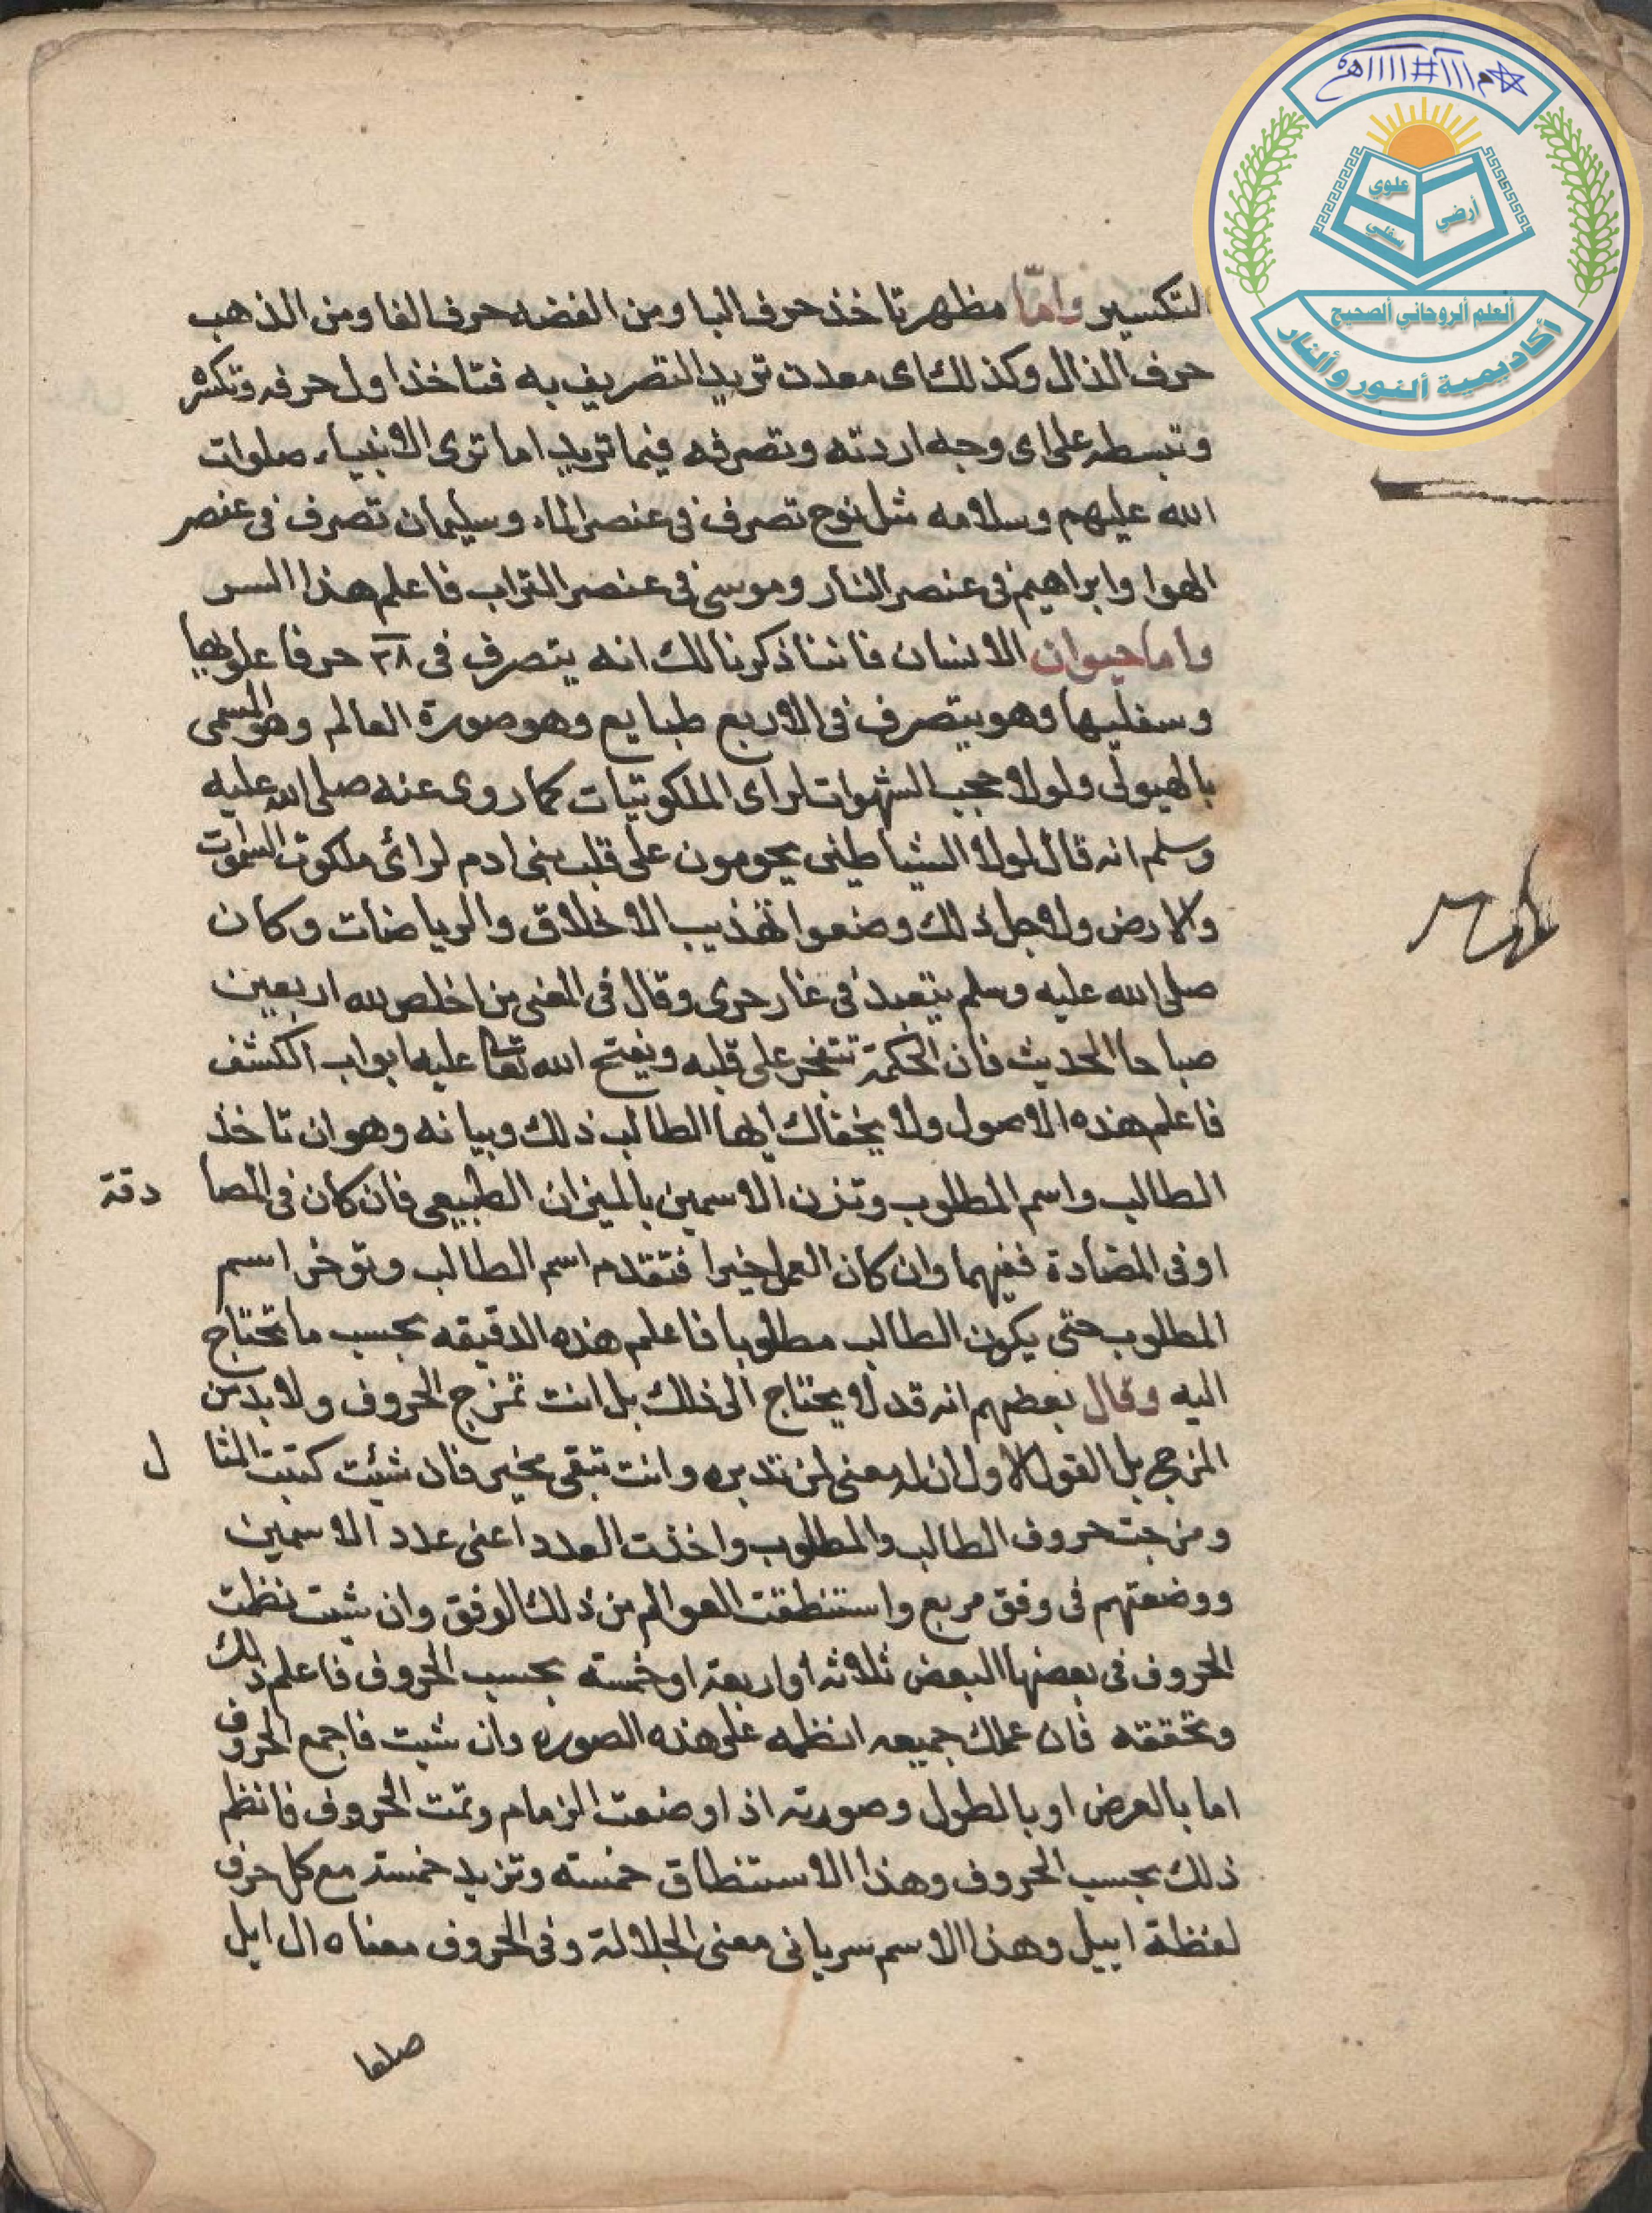 علوي
أرضي
سفلي
العلم الروحاني الصحيح
أكاديمية النور والنار
التكسير واما مظهر تاخذ حرف البا ومن الفضه حرف الفا ومن الذهب
حرف الذال وكذلك اى معدن تريد التصريف به فتاخذ اول حرفه وتكسره
وتبسطه على اى وجه اردته وتصرفه فيما تريد اما ترى الانبياء صلوات
الله عليهم وسلامه مثل نوح تصرف فى عنصر الماء وسليمان تصرف فى عنصر
الهوا وابراهيم فى عنصر النار وموسى فى عنصر التراب فاعلم هذا السر
واما حيوان الانسان فاننا ذكرنا لك انه يتصرف فى ٢٨ حرفا علويها
وسفليها وهو يتصرف فى الاربع طبايع وهو صورة العالم وهو المسمى
بالهيولى ولولا حجب الشهوات لراى الملكوتيات كما روى عنه صلى الله عليه
وسلم انه قال لولا الشياطين يحومون على قلب بنى ادم لرائ ملكوت السموات
والارض ولاجل ذلك وضعوا تهذيب الاخلاق والرياضات وكان
صلى الله عليه وسلم يتعبد فى غار حرى وقال فى المعنى من اخلص لله اربعين
صباحا الحديث فان الحكمة تتفجر على قلبه ويفتح الله تعا عليه ابواب الكشف
فاعلم هذه الاصول ولا يخفاك ايها الطالب ذلك وبيانه وهو ان تاخذ
الطالب واسم المطلوب وتزن الاسمين بالميزان الطبيعى فان كان فى المصا دقة
او فى المضادة ففيهما وان كان العمل خيرا فتقدم اسم الطالب وتوخر اسم
المطلوب حتى يكون الطالب مطلوبا فاعلم هذه الدقيقه بحسب ما تحتاج
اليه وقال بعضهم انه قد لا يحتاج الى ذلك بل انت تمزج الحروف ولا بد من
المزج بل القول الاول ان له معنى لمن تدبره وانت تبقى بخير فان شئت كتبت المثا ل
ومزجت حروف الطالب والمطلوب واخذت العدد اعنى عدد الاسمين
ووضعتهم فى وفق مربع واستنطقت العوالم من ذلك الوفق وان شيت نظمت
الحروف فى بعضها البعض ثلاثه او اربعة او خمسته بحسب الحروف فاعلم ذلك
وتحققه فان عملك جميعه انظمه على هذه الصوره وان شيت فاجمع الحروف
اما بالعرض او بالطول وصورته اذا وضعت الزمام وتمت الحروف فانظم
ذلك بحسب الحروف وهذا الاستنطاق خمسته وتزيد خمسته مع كل حرف
لفظة اييل وهذا الاسم سريانى معنى الجلالة وفى الحروف معناه ال ايل